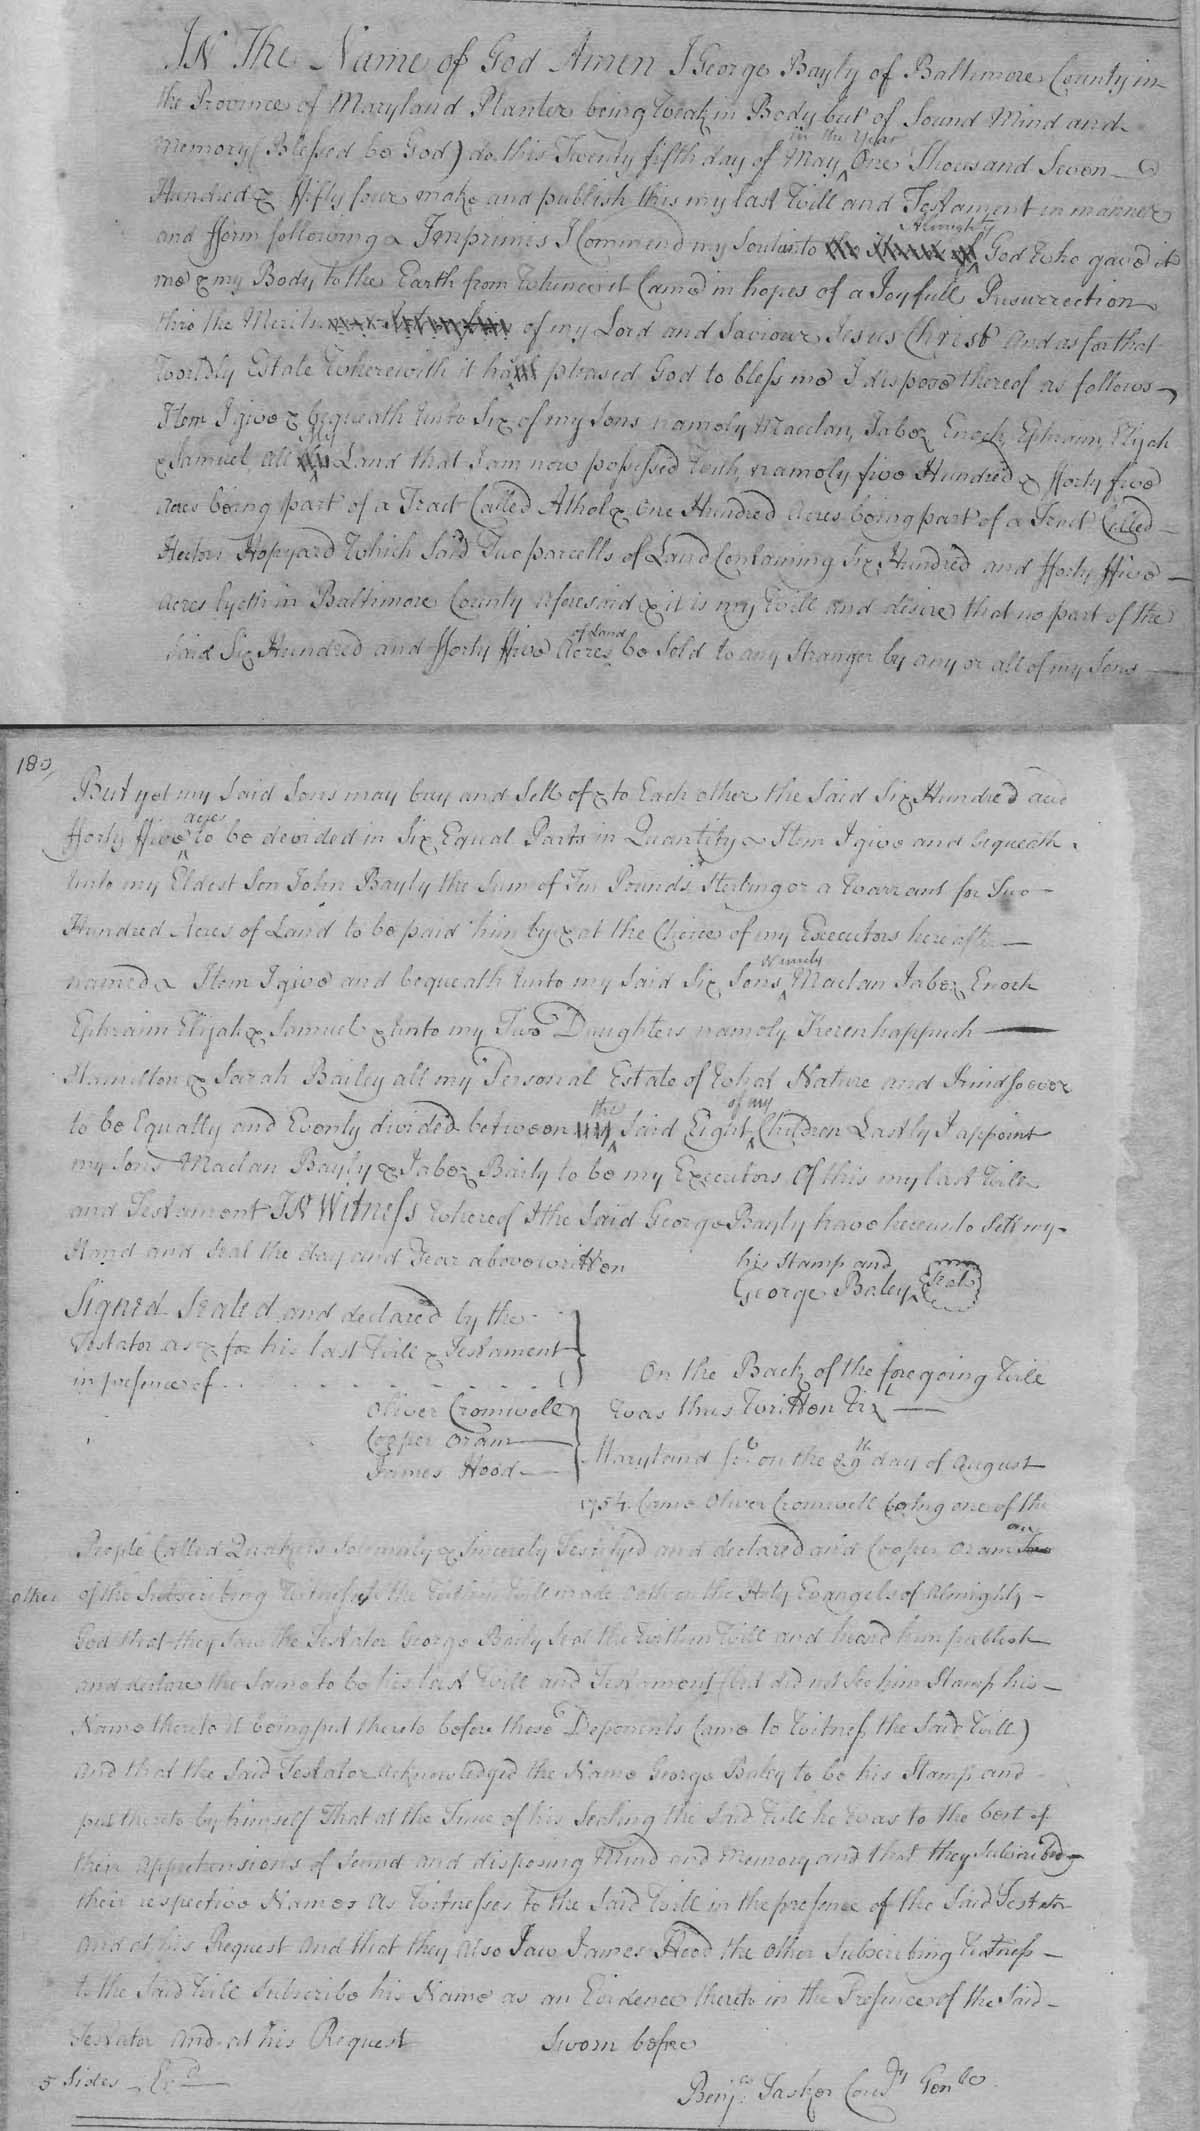 IN The Name of God Amen I George Bayly of Baltimore County in
the Province of Maryland Planter being Weak in Body but of Sound Mind and
in the Year
Memory (Blessed be God) do this Twenty fifth day of May One Thousand Seven
Hundred & ffifty four make and publish this my last Will and Testament in manner
and fform following & Imprimis I Commend my Soul unto Almighty God Who gave it
me & my Body to the Earth from Whence it Came in hopes of a Joyfull Resurrection
thro the Merits of my Lord and Saviour Jesus Christ And as for that
Worldly Estate Wherewith it ha pleased God to bless me I dispose thereof as follows
Item I give & bequeath Unto Six of my Sons namely Maclan, Jabez Enoch, Ephraim, Elijah
& Samuel, all My Land that I am now possessed With, namely five Hundred & fforty five
Acres being part of a Tract Called Athol & One Hundred Acres being part of a Tract Called
Hectors Hopyard Which Said Two parcells of Land Containing Six Hundred and fforty ffive
Acres lyeth in Baltimore County aforesaid & it is my Will and desire that no part of the
of Land
Said Six Hundred and fforty ffive Acres be Sold to any Stranger by any or all of my Sons
180
But yet my Said Sons may buy and Sell of & to Each other the Said Six Hundred and
acres
fforty ffive to be devided in Six Equal Parts in Quantity & Item I give and bequeath
Unto my Eldest Son John Bayly the Sum of Ten Pounds Sterling or a Warrant for Two
Hundred Acres of Land to be paid him by & at the Choice of my Executors hereafter
namely
named & Item I give and bequeath Unto my Said Six Sons Maclan Jabez Enoch
Ephraim Elijah & Samuel & Unto my Two Daughters namely Kerenhappuch
Hamilton & Sarah Bailey all my Personal Estate of What Nature and Kind soever
the of my
to be Equally and Evenly divided between Said Eight Children Lastly I appoint
my Sons Maclan Bayly & Jabez Baily to be my Executors Of this my last Will
and Testament IN Witness Whereof I the Said George Bayly have hereunto Sett my
Hand and Seal the day and Year above written
his Stamp and
George Baley Seal
Signed Sealed and declared by the
Testator as & for his last Will & Testament
in presence of
Oliver Cromwell
Cooper Oram
James Hood
On the Back of the foregoing Will
was thus Written Viz
Maryland Sc. on the 29th day of August
1754 Came Oliver Cromwell being one of the
People Called Quakers Solemnly & Sincerely Testifyed and declared and Cooper Oram an
other of the Subscribing Witnesses to the Within Will made Oath on the Holy Evangels of Almighty
God that they Saw the Testator George Baily Seal the Within Will and heard him publish
and declare the Same to be his last Will and Testament (but did not See him Stamp his
Name thereto it being put thereto before these Deponents Came to Witness the Said Will)
And that the Said Testator Acknowledged the Name George Baley to be his Stamp and
put thereto by himself That at the Time of his Sealing the Said Will he was to the best of
their Apprehensions of Sound and disposing Mind and Memory and that they Subscribed
their respective Names as Witnesses to the Said Will in the presence of the Said Testator
And at his Request And that they also Saw James Hood the other Subscribing Witness
to the Said Will Subscribe his Name as an Evidence thereto in the Presence of the Said
Testator And at his Request Sworn before
5 Sides Exd
Benja. Tasker Comsy Genl